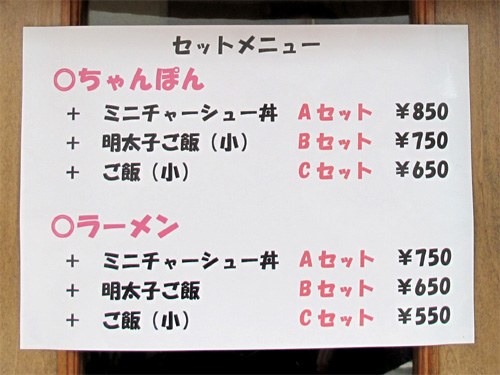 セットメニュー
○ちゃんぽん
+ ミニチャーシュー丼 Aセット ¥850
+ 明太子ご飯（小） Bセット ¥750
+ ご飯（小） Cセット ¥650
○ラーメン
+ ミニチャーシュー丼 Aセット ¥750
+ 明太子ご飯 Bセット ¥650
+ ご飯（小） Cセット ¥550